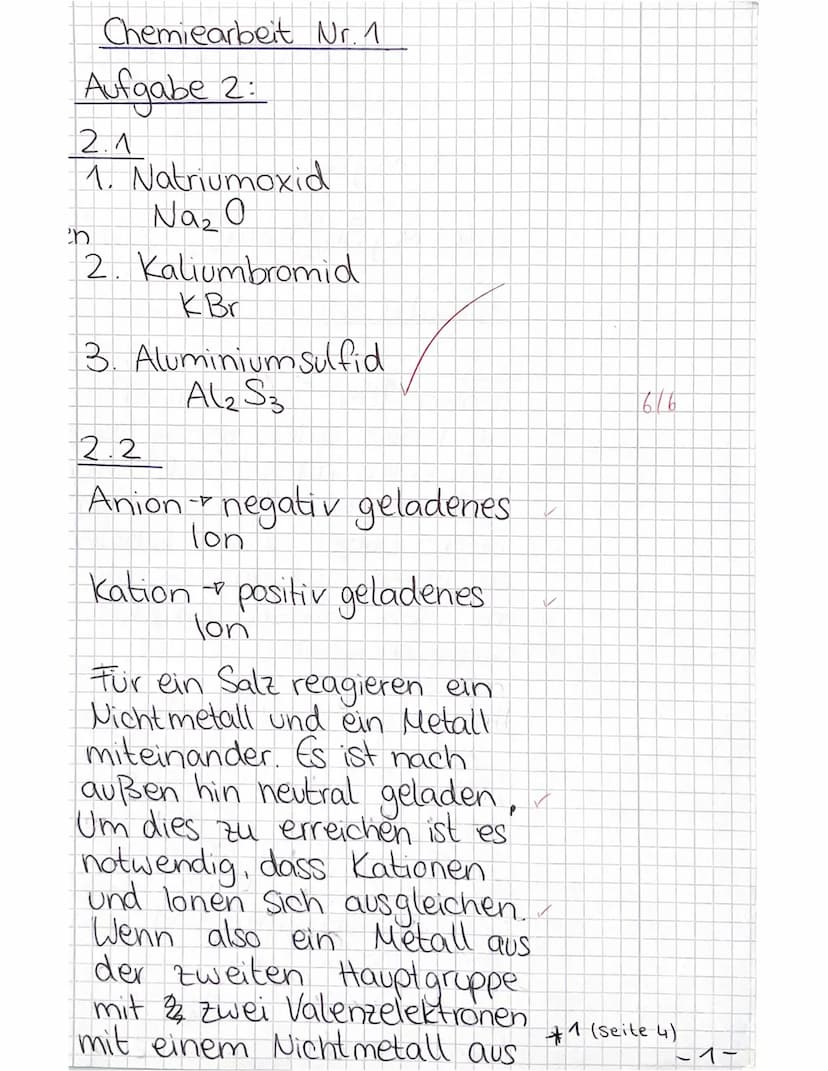 Chemiearbeit Nr. 1
Aufgabe 2:
2.1
1. Natriumoxid
Na₂O
en
2. Kaliumbromid
KBr
3. Aluminiumsulfid
Al₂S₃
6/6
2.2
Anion → negativ geladenes
Ion
Kation → positiv geladenes
Ion
Für ein Salz reagieren ein
Nichtmetall und ein Metall
miteinander. Es ist nach
außen hin neutral geladen.
Um dies zu erreichen ist es
notwendig, dass Kationen
und Ionen sich ausgleichen.
Wenn also ein Metall aus
der zweiten Hauptgruppe
mit zwei Valenzelektronen
*1 (Seite 4)
mit einem Nichtmetall aus
-1-